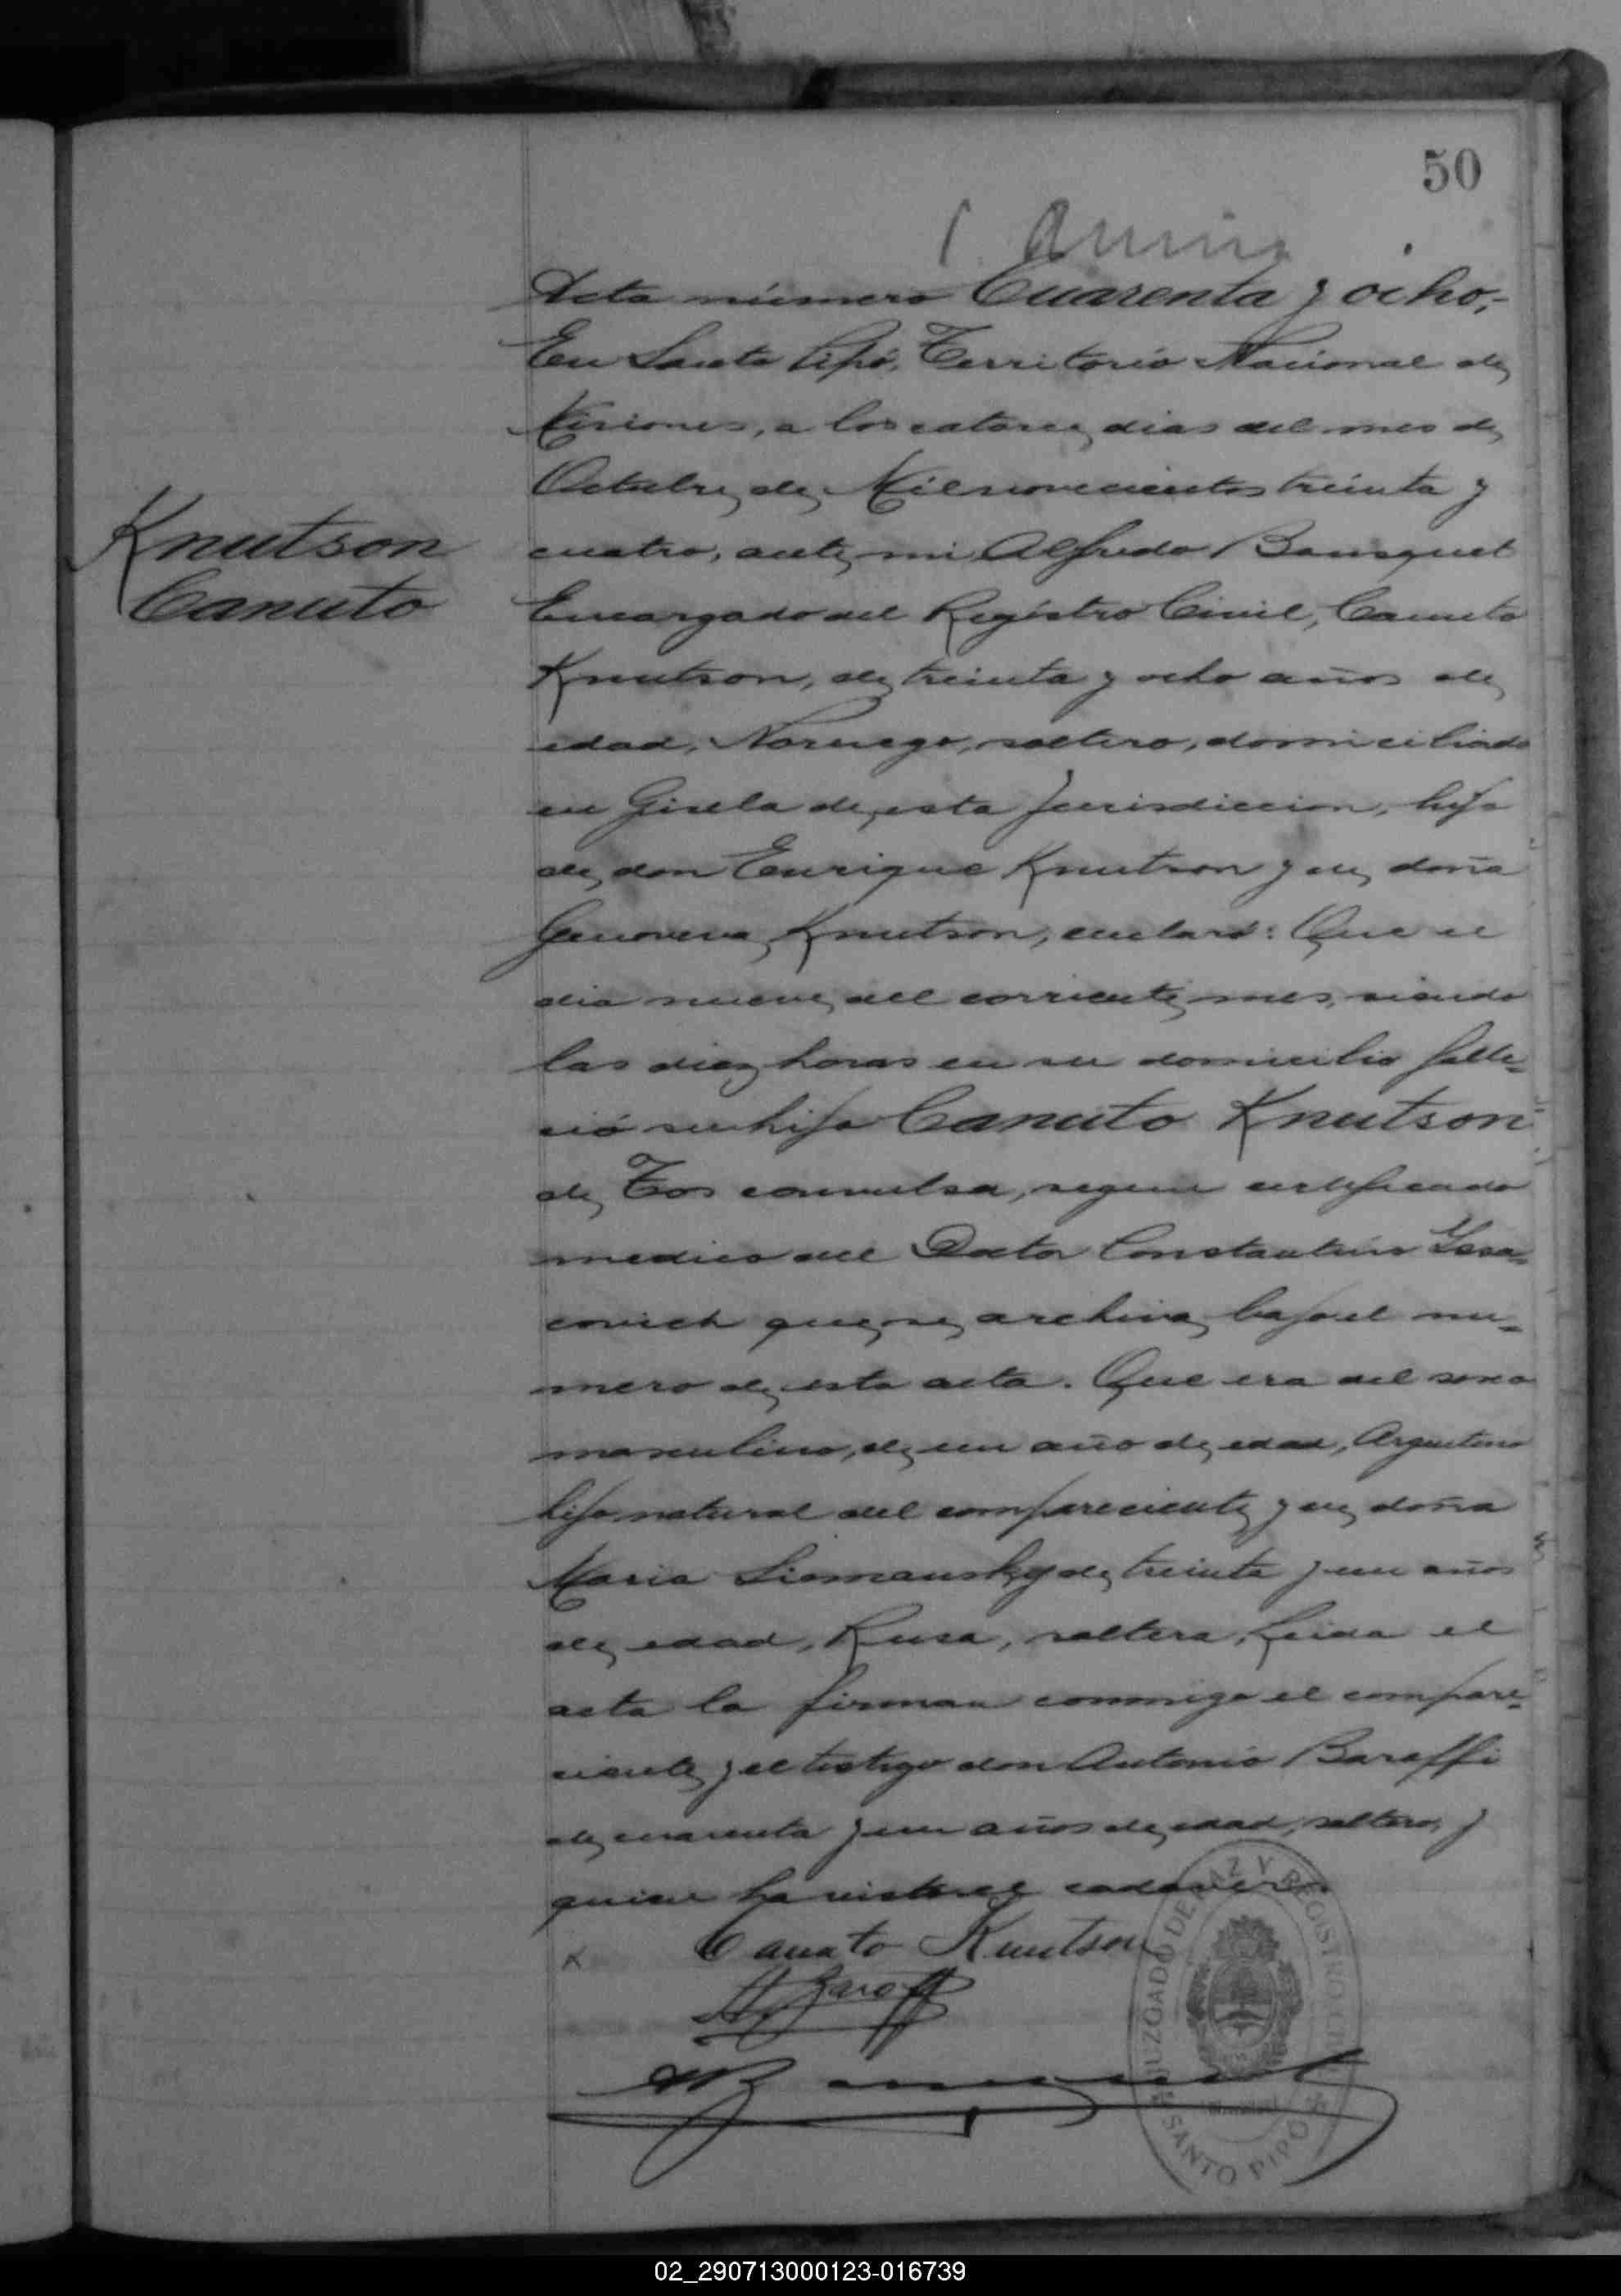 50
Acta número Cuarenta y ocho,-
En Santo Pipó, Territorio Nacional de
Misiones, a los catorce dias del mes de
Octubre de Mil novecientos treinta y
cuatro, ante mi Alfredo Bousquet
Encargado del Registro Civil, Canuto
Knutson, de treinta y ocho años de
edad, Noruego, soltero, domiciliado
en Gisela de esta Jurisdiccion, hijo
de don Enrique Knutson y de doña
Genoveva Knutson, declaró: Que el
dia nueve del corriente mes, siendo
las diez horas en su domicilio falle=
ció su hijo Canuto Knutson
de Tos convulsa, segun certificado
medico del Doctor Constantino
que se archiva bajo el nu=
mero de esta acta. Que era del sexo
masculino, de un año de edad, Argentino
hijo natural del compareciente y de doña
Maria de treinta y un años
de edad, Rusa, soltera, Leida el
acta la firman conmigo el compare=
ciente y el testigo don Antonio Baroffi
de cuarenta y un años de edad, soltero, y
quien ha visto el cadaver.
Knutson
Canuto
x Canuto Knutson
A Baroffi
A Bousquet
JUZGADO DE PAZ Y REGISTRO CIVIL
SANTO PIPÓ
02_290713000123-016739